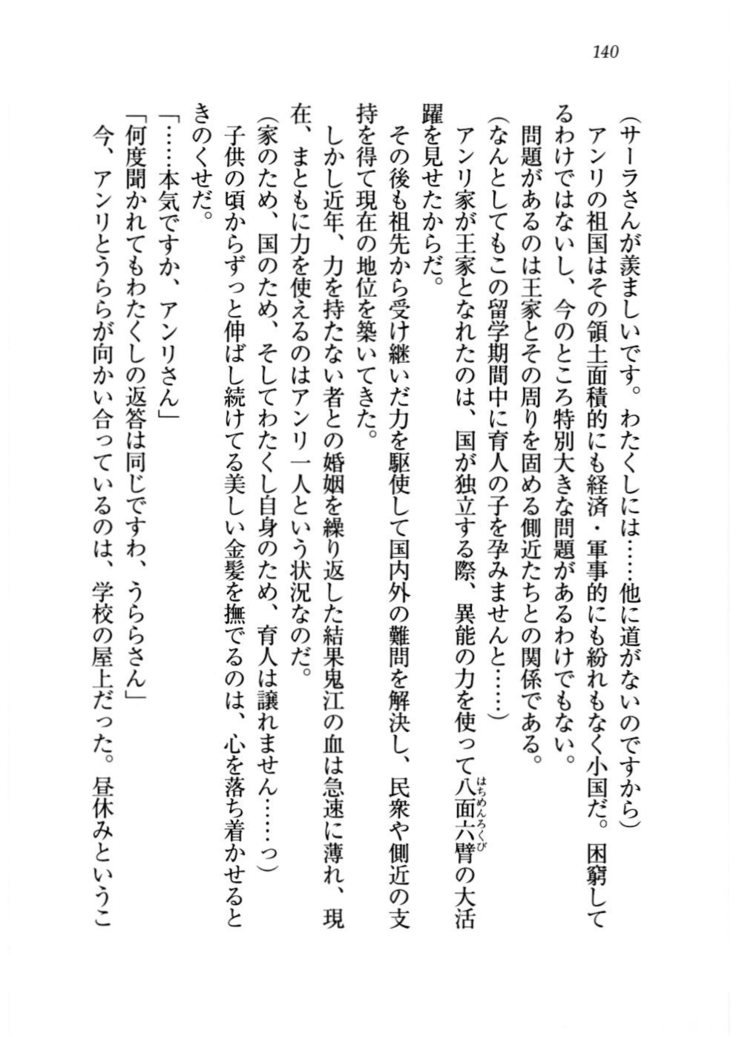 140
(サーラさんが羨ましいです。わたくしには……他に道がないのですから)
アンリの祖国はその領土面積的にも経済・軍事的にも紛れもなく小国だ。困窮して
るわけではないし、今のところ特別大きな問題があるわけでもない。
問題があるのは王家とその周りを固める側近たちとの関係である。
(なんとしてもこの留学期間中に育人の子を孕みませんと……)
アンリ家が王家となれたのは、国が独立する際、異能の力を使って八面六臂の大活
はちめんろくぴ
躍を見せたからだ。
その後も祖先から受け継いだ力を駆使して国内外の難問を解決し、民衆や側近の支
持を得て現在の地位を築いてきた。
しかし近年、力を持たない者との婚姻を繰り返した結果鬼江の血は急速に薄れ、現
在、まともに力を使えるのはアンリ一人という状況なのだ。
(家のため、国のため、そしてわたくし自身のため、育人は譲れません……っ)
子供の頃からずっと伸ばし続けてる美しい金髪を撫でるのは、心を落ち着かせると
きのくせだ。
「……本気ですか、アンリさん」
「何度聞かれてもわたくしの返答は同じですわ、うららさん」
今、アンリとうららが向かい合っているのは、学校の屋上だった。昼休みというこ